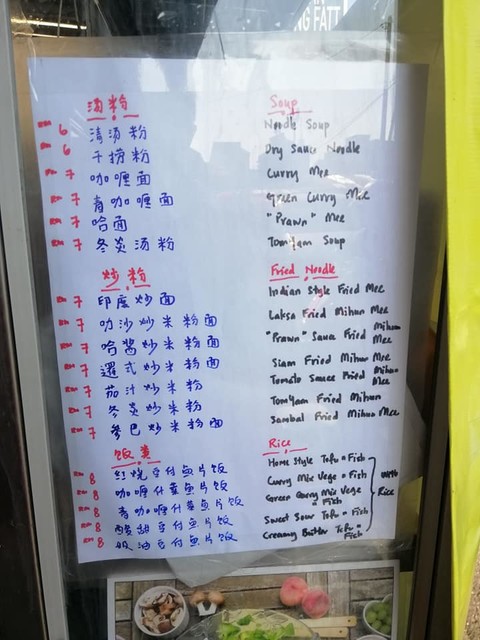 NG FATT
汤粉 Soup
RM 6 清汤粉 Noodle Soup
RM 6 干捞粉 Dry Sauce Noodle
RM 7 咖喱面 Curry Mee
RM 7 青咖喱面 Green Curry Mee
RM 7 哈面 "Prawn" Mee
RM 7 冬炎汤粉 TomYam Soup
炒粉 Fried Noodle
RM 7 印度炒面 Indian Style Fried Mee
RM 7 叻沙炒米粉面 Laksa Fried Mihun Mee
RM 7 哈酱炒米粉面 "Prawn" Sauce Fried Mihun Mee
RM 7 暹式炒米粉面 Siam Fried Mihun Mee
RM 7 茄汁炒米粉 Tomato Sauce Fried Mihun Mee
RM 7 冬炎炒米粉 TomYam Fried Mihun
RM 7 参巴炒米粉面 Sambal Fried Mihun Mee
饭 Rice
RM 8 红烧豆付鱼片饭 Home Style Tofu + Fish
RM 8 咖喱什菜鱼片饭 Curry Mix Vege + Fish
RM 8 青咖喱什菜鱼片饭 Green Curry Mix Vege + Fish
RM 8 酸甜豆付鱼片饭 Sweet Sour Tofu + Fish
RM 8 奶油豆付鱼片饭 Creamy Butter Tofu + Fish
with Rice